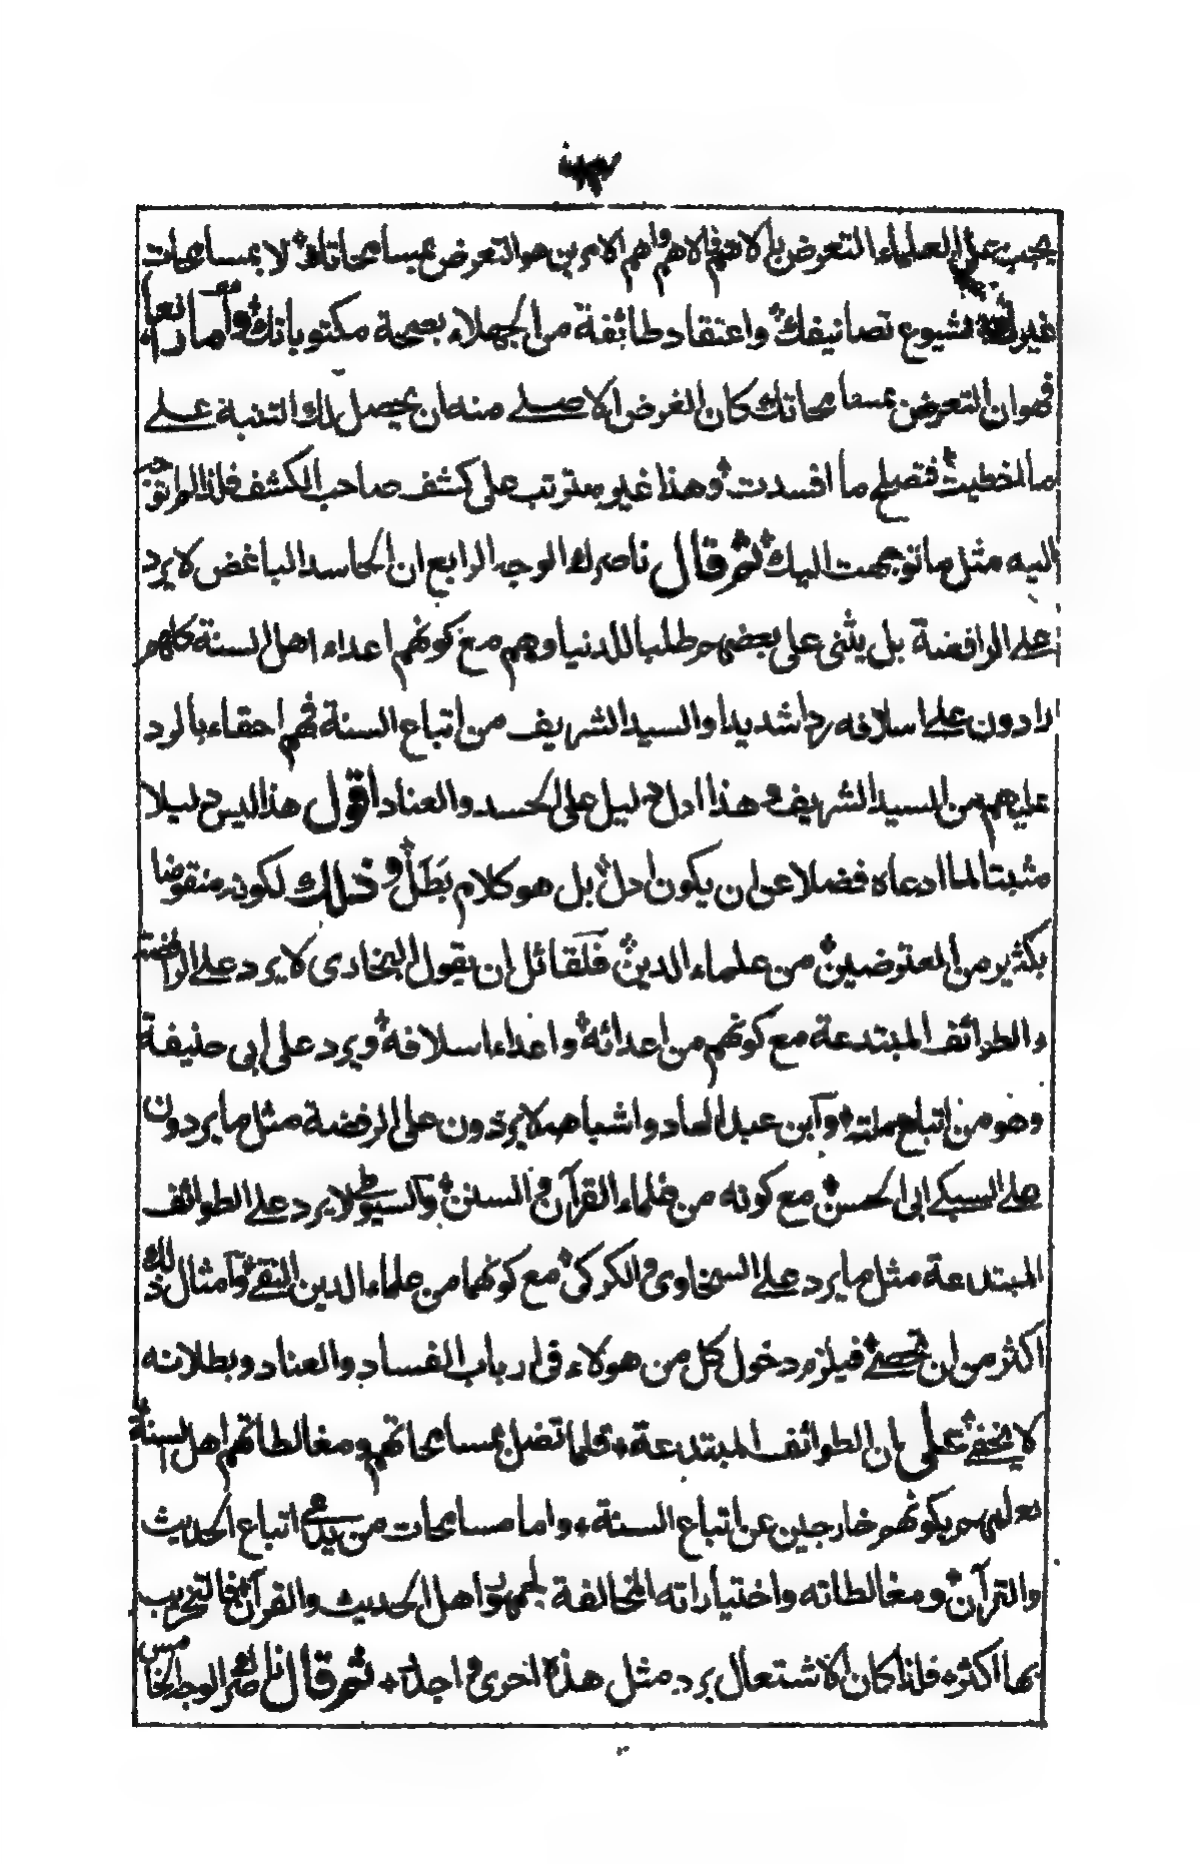 يجب على العلماء التعرض بالاهم فالاهم واهم الامرين هو التعرض بمسامحاتك لا بمسامحات
غيرك لشيوع تصانيفك واعتقاد طائفة من الجهلاء بصحة مكتوباتك واما رابعا
فهو ان التعرض بمسامحاتك كان الغرض الاصلي منه ان يحصل لك التنبه على
ما اخطيت فتصلح ما افسدت وهذا غير مترتب على كشف صاحب الكشف فلذا لم اتوجه
اليه مثل ما توجهت اليك ثم قال ناصرك الوجه الرابع ان الحاسد الباغض لا يرد
على الرافضة بل يثنى على بعضهم طلبا للدنيا وهم مع كونهم اعداء اهل السنة كلهم
رادون على اسلافه ردا شديدا والسيد الشريف من اتباع السنة فهم احقاء بالرد
عليهم من السيد الشريف وهذا ادل دليل على الحسد والعناد اقول هذا ليس دليلا
مثبتا لما ادعاه فضلا عن ان يكون ادل بل هو كلام بطل وذلك لكونه منقوضا
بكثير من المعترضين من علماء الدين فلقائل ان يقول البخارى لا يرد على الرافضة
والطوائف المبتدعة مع كونهم من اعدائه واعداء اسلافه ويرد على ابى حنيفة
وهو من اتباع ملته وابن عبد الهاد واشباهه لا يردون على الرفضة مثل ما يردون
على السبكي ابى الحسن مع كونه من علماء القرآن والسنن والسيوطي لا يرد على الطوائف
المبتدعة مثل ما يرد على السخاوى والكركى مع كونهما من علماء الدين النقي وامثال ذلك
اكثر من ان تحصى فيلزم دخول كل من هولاء فى ارباب الفساد والعناد وبطلانه
لا يخفى على ان الطوائف المبتدعة قلما تضل بمسامحاتهم ومغالطاتهم اهل السنة
لعلمهم بكونهم خارجين عن اتباع السنة واما مسامحات من يدعى اتباع الحديث
والقرآن ومغالطاته واختياراته المخالفة لجمهور اهل الحديث والقرآن فالتخريب
بها اكثر فلذا كان الاشتعال برد مثل هذه احرى واجل ثم قال ناصرك الوجه الخامس